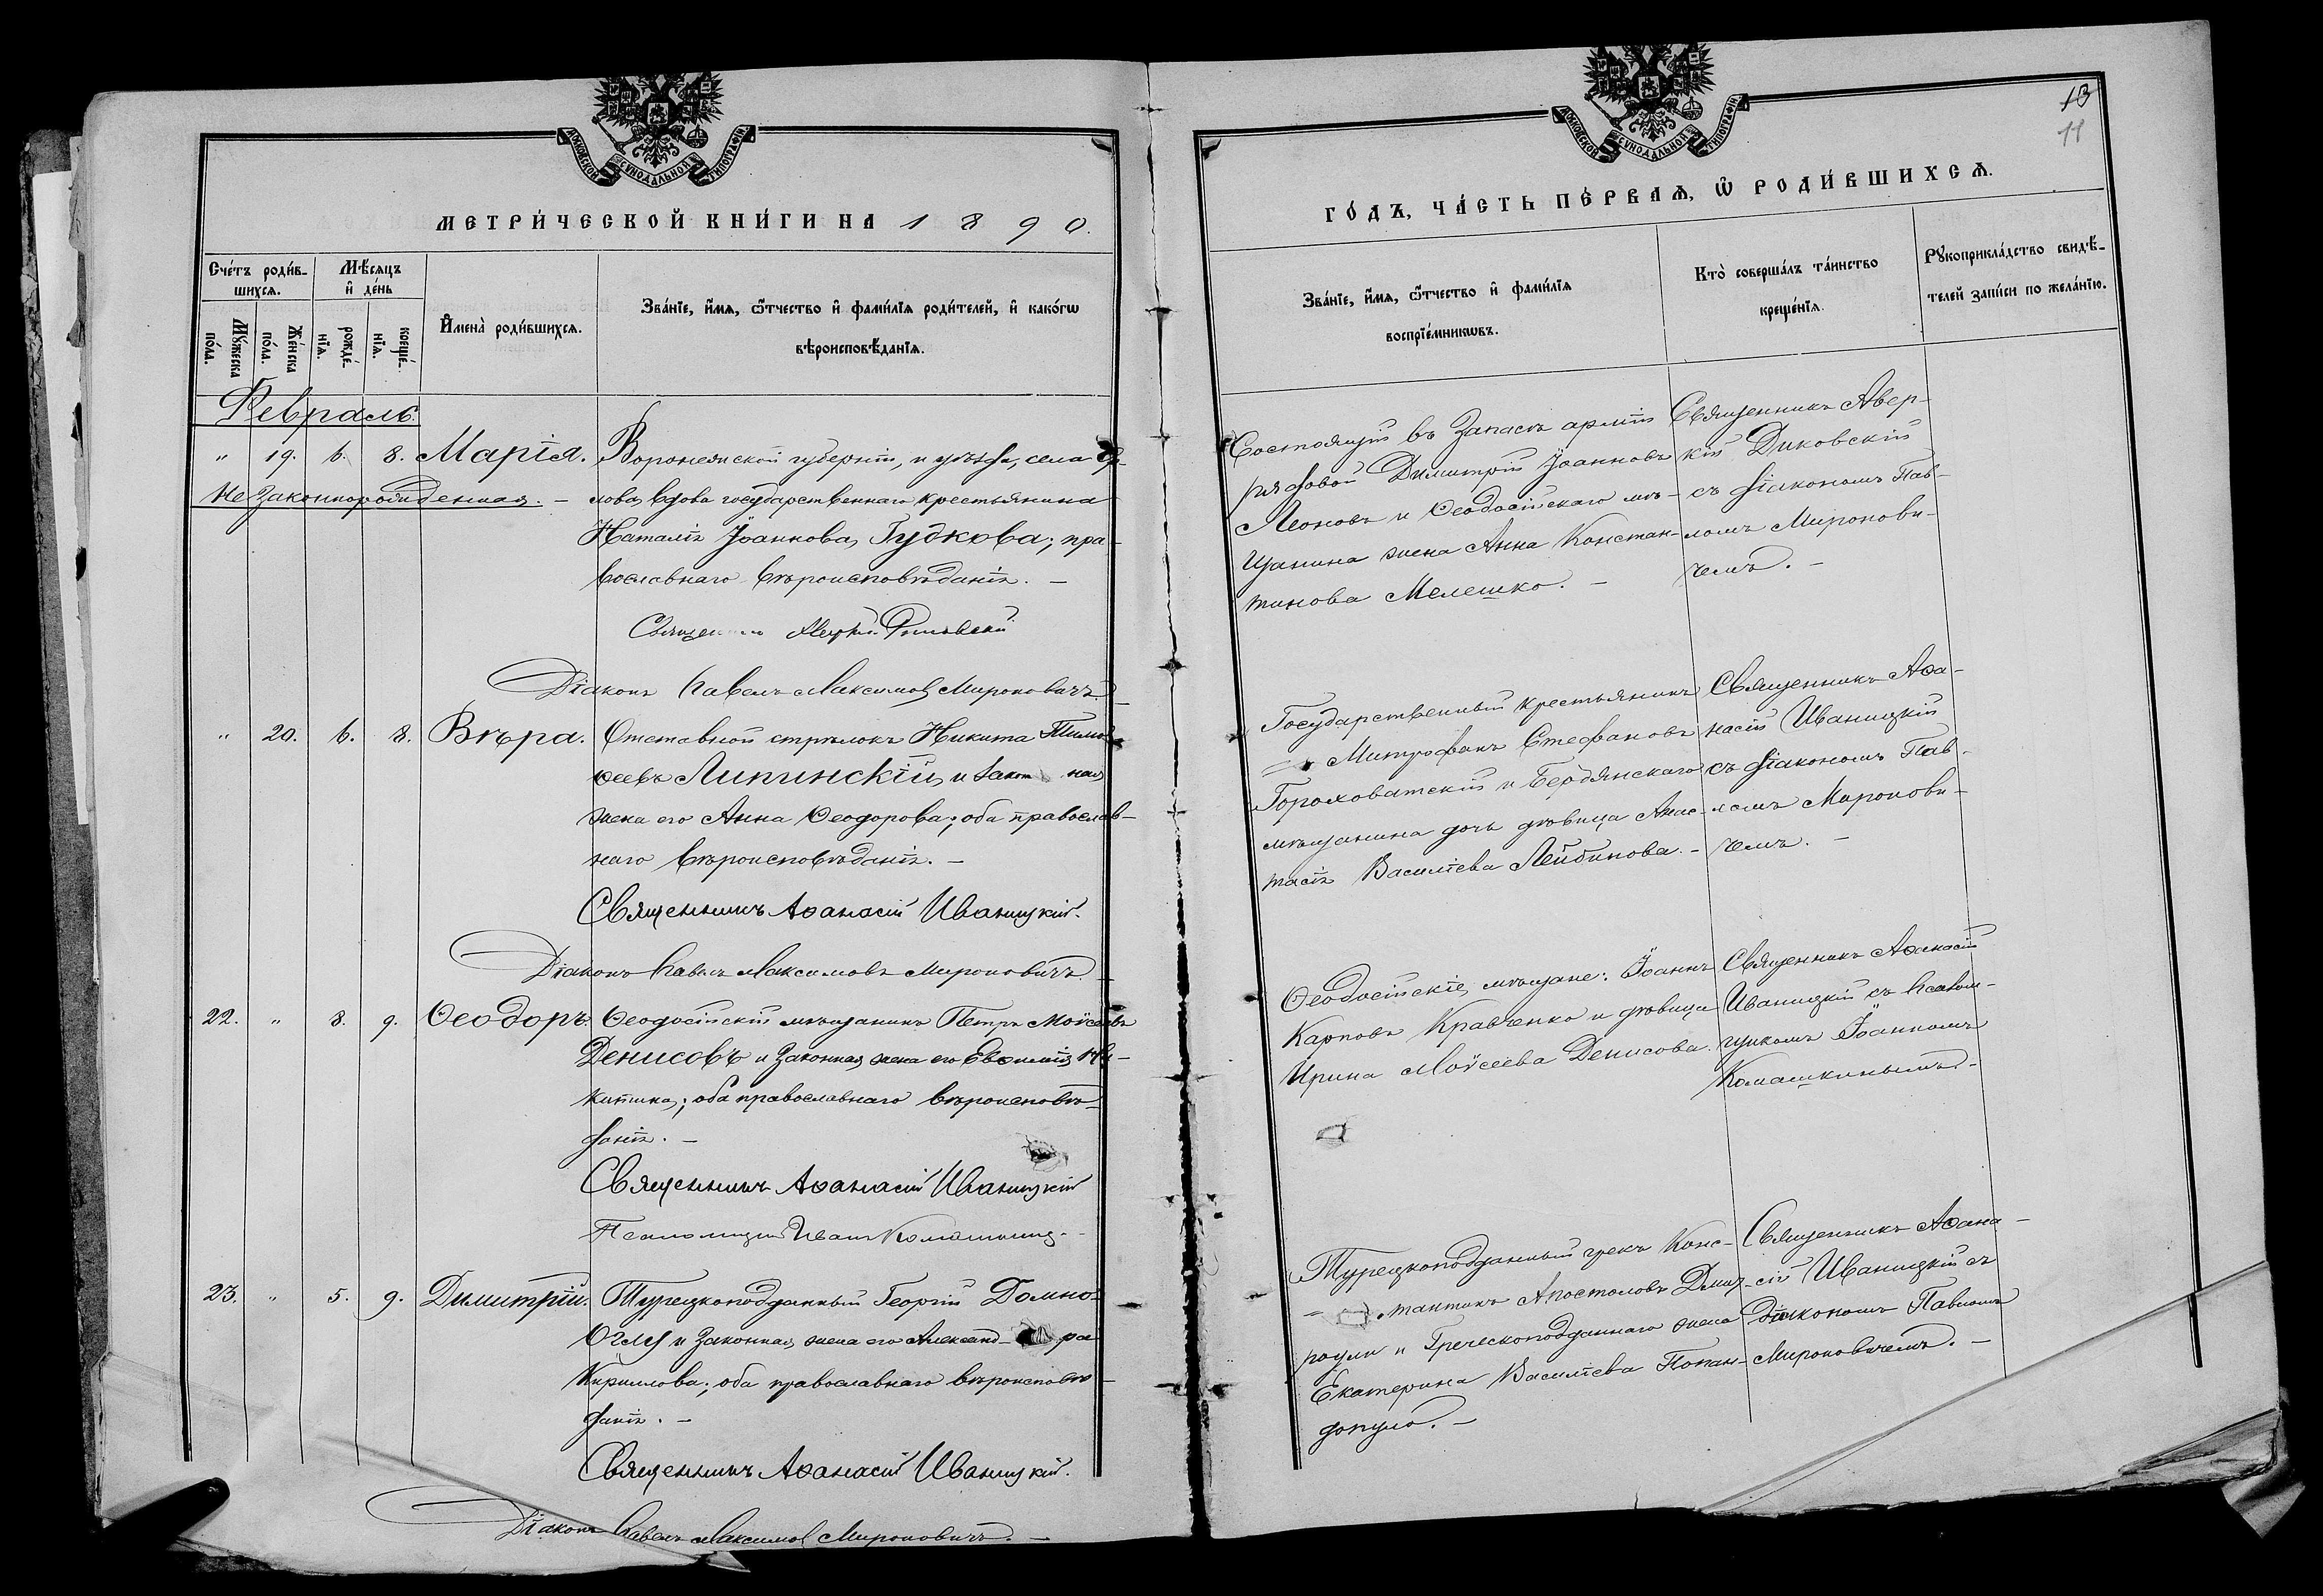 МОСКОВСКОЙ СѴНОДАЛЬНОЙ ТИПОГРАФІИ
МЕТРИ́ЧЕСКОЙ КНИ́ГИ НА 1890.
Сче́тъ роди́в-
шихсѧ.
Мѣ́сѧцъ
и҆ де́нь
И҆мена̀ роди́вшихсѧ.
Зва́нїе, и҆́мѧ, ѻ҆́тчество и҆ фами́лїѧ роди́телей, и҆ како́гѡ
вѣроисповѣ́данїѧ.
Мꙋ́жеска
по́ла.
Же́нска
по́ла.
рожде́-
нїѧ.
креще́-
нїѧ.
Февраль.
" 19. 6. 8. Марія. Воронежской губерніи, и уѣзда, села
Незаконнорожденная. – лова, вдова государственнаго крестьянина
Наталія Іоаннова, Гудкова; пра-
вославнаго вѣроисповѣданія. –
Священникъ
Діаконъ Павелъ Максимов Мироновичъ
" 20. 6. 8. Вѣра. Отставной стрѣлокъ Никита Тимо-
ѳеевъ Липинскій, и закон ная
жена его Анна Ѳеодорова; оба православ-
наго вѣроисповѣданія. –
Священникъ Аѳанасій Иваницкій.
Діаконъ Павелъ Максимовъ Мироновичъ
22. " 8. 9. Ѳеодоръ. Ѳеодосійскій мѣщанинъ Петръ Моѵсеевъ
Денисовъ и законная жена его Евѳимія Ни-
китина; оба православнаго вѣроисповѣ-
данія. –
Священникъ Аѳанасій Иваницкій
Псаломщикъ Иванъ Комашкинъ.
23. " 5. 9. Димитрій. Турецкоподданный Георгій Домно-
Оглу и законная жена его Александ- ра
Кириллова; оба православнаго вѣроисповѣ-
данія. –
Священникъ Аѳанасій Иваницкій.
Діаконъ Павелъ Максимов Мироновичъ. –
13
11
МОСКОВСКОЙ СѴНОДАЛЬНОЙ ТИПОГРАФІИ
ГО́ДЪ, ЧА́СТЬ ПЕ́РВАѦ, Ѡ҆ РОДИ́ВШИХСѦ.
Зва́нїе, и҆́мѧ, ѻ҆́тчество и҆ фами́лїѧ
воспрїе́мникѡвъ.
Кто̀ соверша́лъ та́инство
креще́нїѧ.
Рꙋкоприкла́дство свидѣ́-
телей за́писи по жела́нїю.
Состоящій въ запасѣ арміи
рядовой Димитрій Іоанновъ
Леоновъ и Ѳеодосійскаго мѣ-
щанина жена Анна Констан-
тинова Мелешко. –
Священникъ Авер-
кій Диковскій
съ діакономъ Пав-
ломъ Миронови-
чемъ. –
Государственный крестьянинъ
Митрофанъ Стефановъ
Гороховатскій и Бердянскаго
мѣщанина дочь дѣвица Анас-
тасія Василіева Лейбинова. –
Священникъ Аѳа-
насій Иваницкій
съ діакономъ Пав-
ломъ Миронови-
чемъ. –
Ѳеодосійскіе мѣщане: Іоаннъ
Карповъ Кравченко и дѣвица
Ирина Моѵсеева Денисова.
Священникъ Аѳанасій
Иваницкій съ псалом-
щикомъ Іоанномъ
Комашкинымъ. –
Турецкоподданный грекъ Конс-
тантинъ Апостоловъ
роули и Греческоподданнаго жена
Екатерина Василіева Попан-
допуло. –
Священникъ Аѳана-
сій Иваницкій съ
Діакономъ Павломъ
Мироновичемъ. –